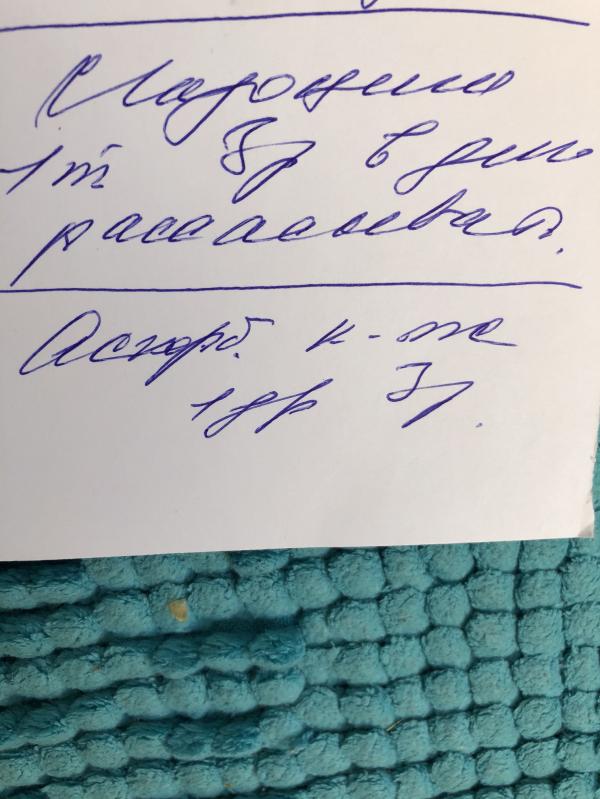 1т 3р в день
рассасывать.
Аскорб. к-та
1др 3р.